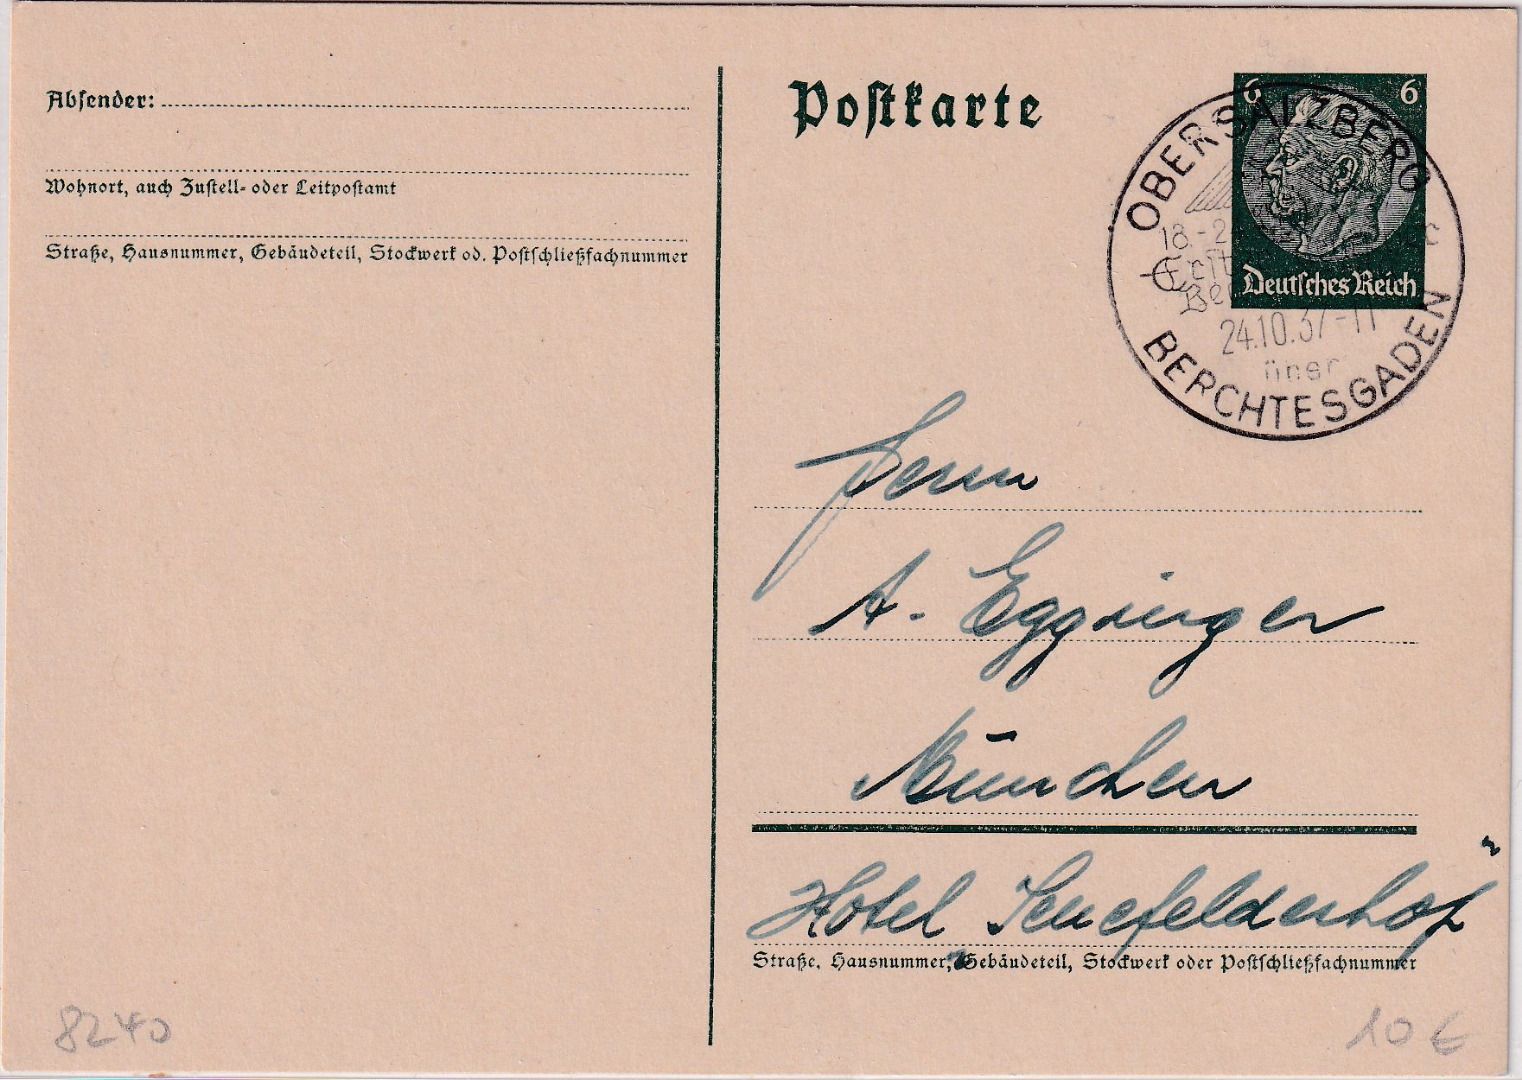 Absender:
Wohnort, auch Zustell- oder Leitpostamt
Straße, Hausnummer, Gebäudeteil, Stockwerk od. Postschließfachnummer
Postkarte
6 6
Deutsches Reich
OBERSALZBERG
18.-2
24.10.37-11
über
BERCHTESGADEN
Herrn
A. Egginger
München
Hotel Senefelderhof"
Straße, Hausnummer, Gebäudeteil, Stockwerk oder Postschließfachnummer
8240
10 €